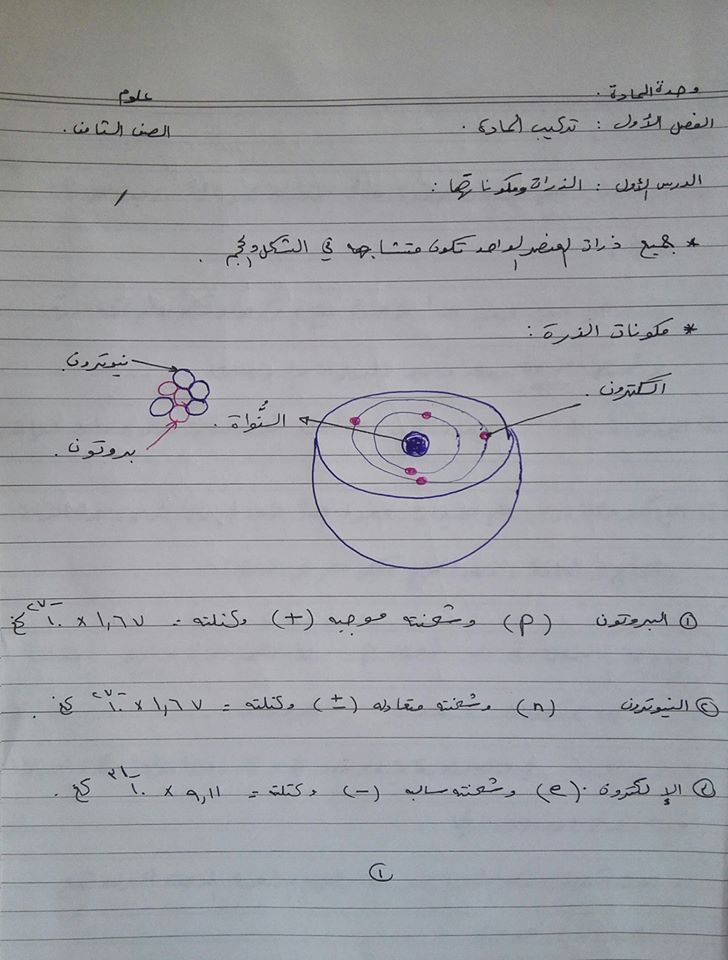 وحدة المادة . علوم
الفصل الأول : تركيب المادة . الصف الثامن .
الدرس الأول : الذرات ومكوناتها :
* جميع ذرات العنصر الواحد تكون متشابهه في الشكل والحجم .
* مكونات الذرة :
نيوترون .
الكترون .
النُّواة .
بروتون .
① البروتون (p) وشحنته موجبه (+) وكتلته = ١,٦٧ × ١٠⁻²⁷ كغ
② النيوترون (n) وشحنته متعادله (±) وكتلته = ١,٦٧ × ١٠⁻²⁷ كغ .
③ الإلكترون . (e) وشحنته سالبه (-) وكتلته = ٩,١١ × ١٠⁻³¹ كغ .
①